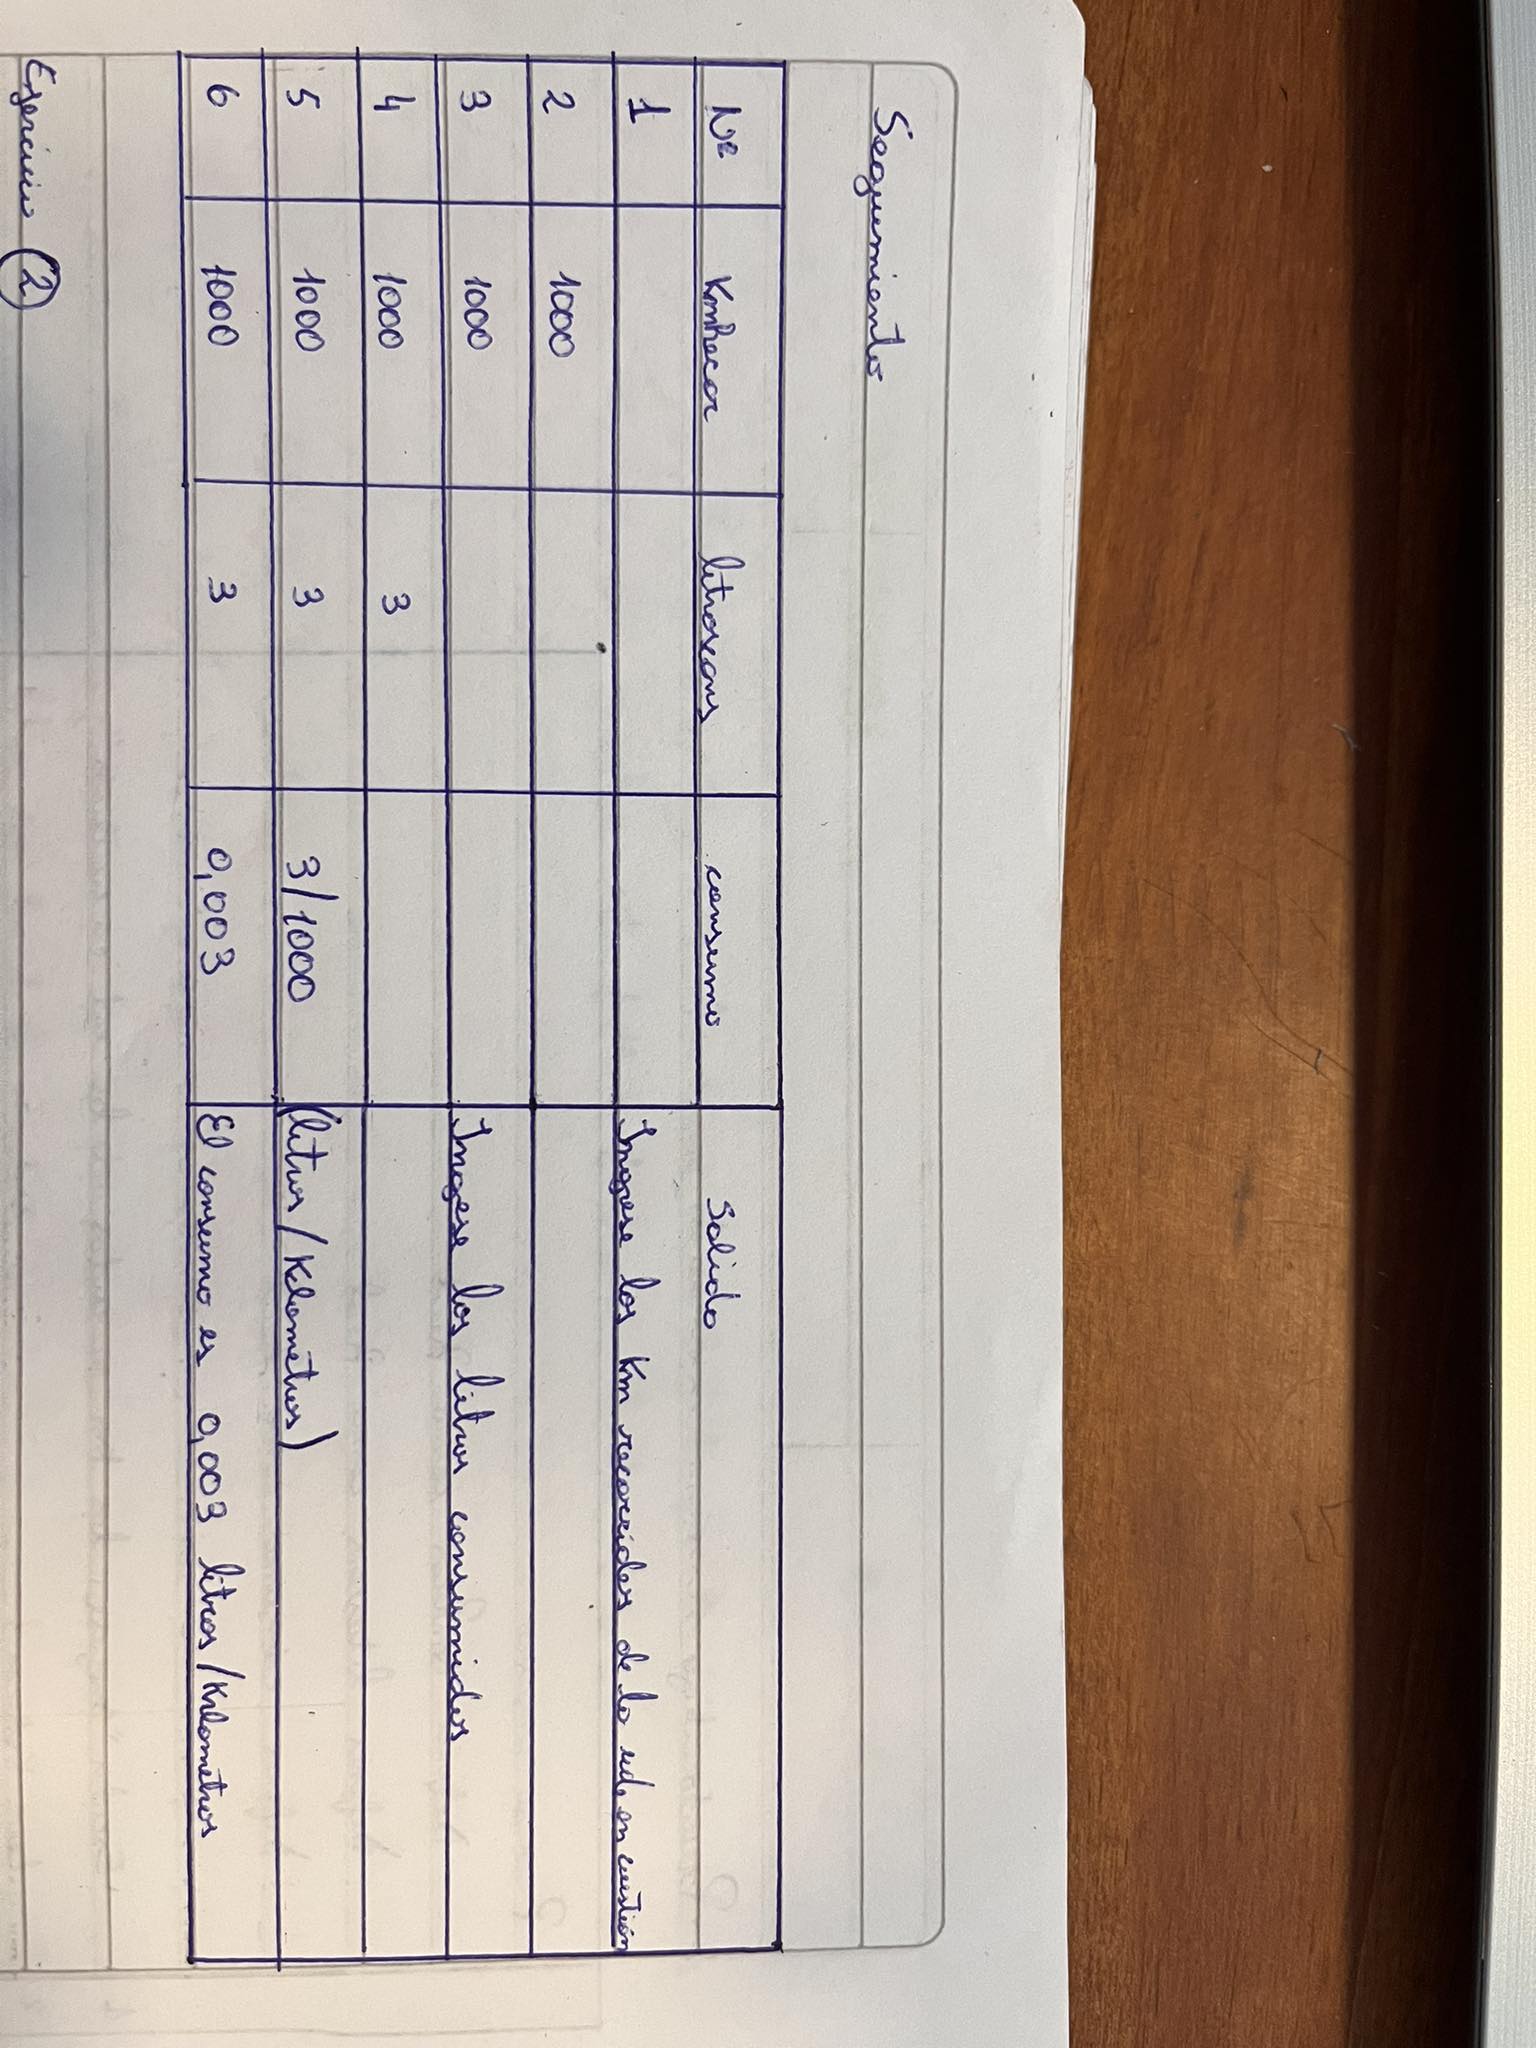 Seguimiento
Nº KmRecor litroscons consumo Salida
1 Ingrese los Km recorridos de la ud. en cuestión
2 1000
3 1000 Ingrese los litros consumidos
4 1000 3
5 1000 3 3/1000 (litros/Kilometros)
6 1000 3 0,003 El consumo es 0,003 litros/Kilometros
Ejercicio 2